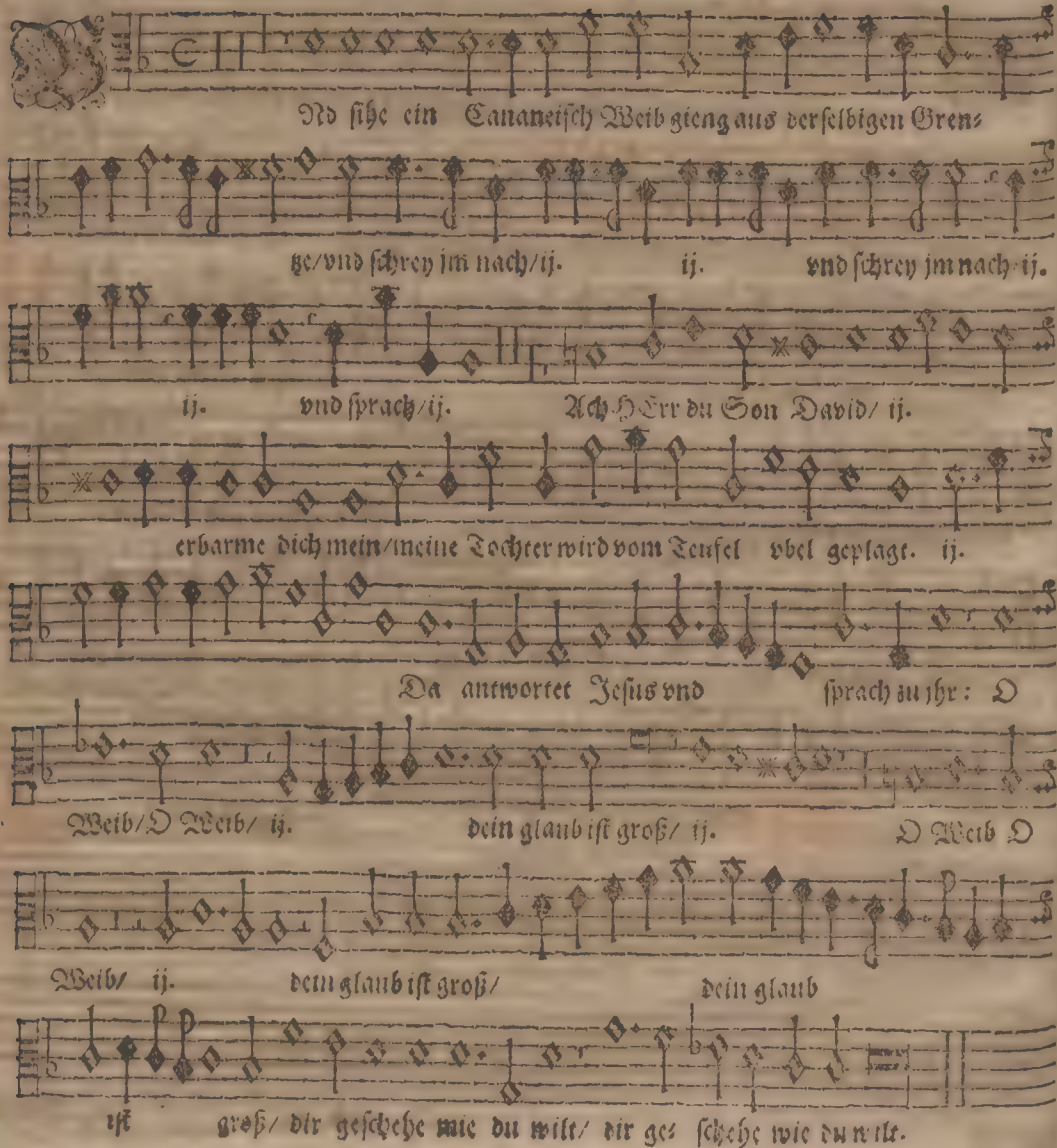 Nd sihe ein Cananeisch Weib gieng aus derselbigen Gren⸗
tze/vnd schrey jm nach/ij. ij. vnd schrey jm nach ij.
ij. vnd sprach/ij. Ach HErr du Son David/ ij.
erbarme dich mein/meine Tochter wird vom Teufel vbel geplagt. ij.
Da antwortet Jesus vnd sprach zu ihr: O
Weib/O Weib/ ij. dein glaub ist groß/ ij. O Weib O
Weib/ ij. dein glaub ist groß/ dein glaub
ist groß/ dir geschehe wie du wilt/ dir ge⸗ schehe wie du wilt.